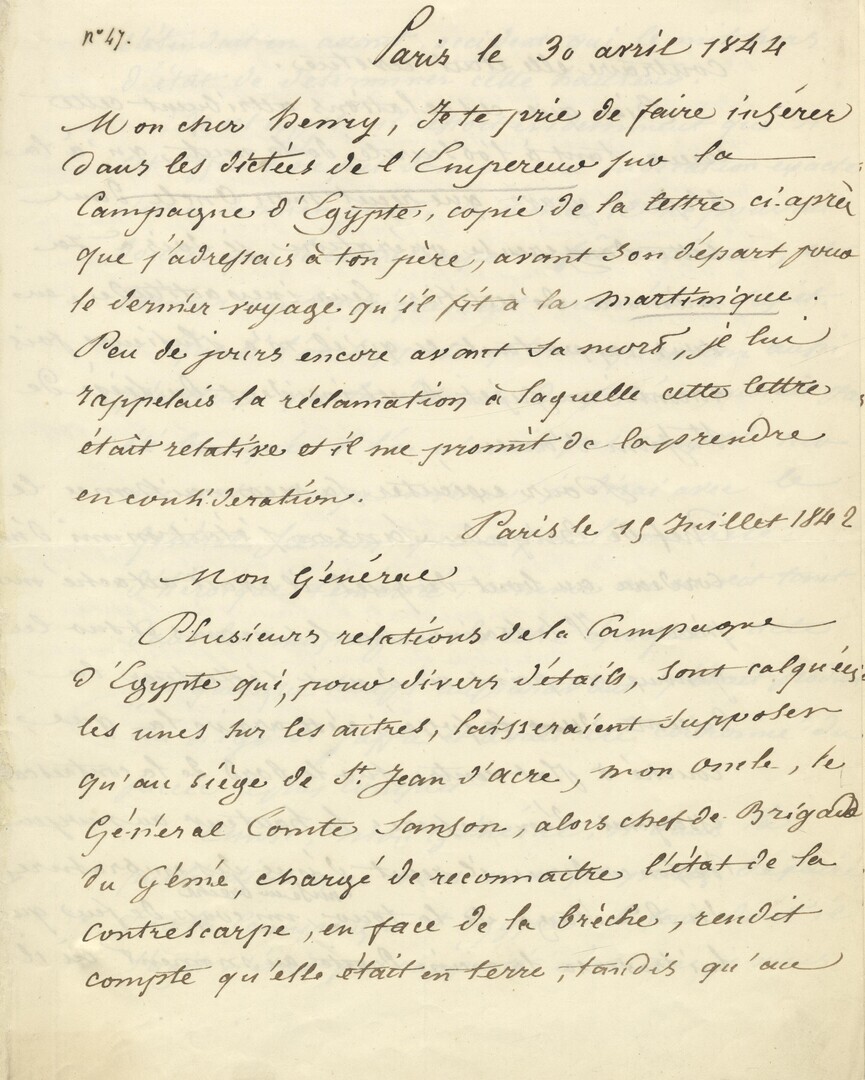 n° 47.
Paris le 30 avril 1844
Mon cher henry, Je te prie de faire insérer
dans les dictées de l'Empereur sur la
Campagne d'Egypte, copie de la lettre ci-après
que j'adressais à ton père, avant son départ pour
le dernier voyage qu'il fit à la martinique.
Peu de jours encore avant sa mort, je lui
rappelais la réclamation à laquelle cette lettre
était relative et il me promit de la prendre
en considération.
Paris le 15 Juillet 1842
Mon Général
Plusieurs relations de la Campagne
d'Egypte qui, pour divers détails, sont calquées
les unes sur les autres, laisseraient supposer
qu'au siège de St. Jean d'acre, mon oncle, le
Général Comte Sanson, alors chef de Brigade
du Génie, chargé de reconnaitre l'état de la
contrescarpe, en face de la brèche, rendit
compte qu'elle était en terre, tandis qu'au